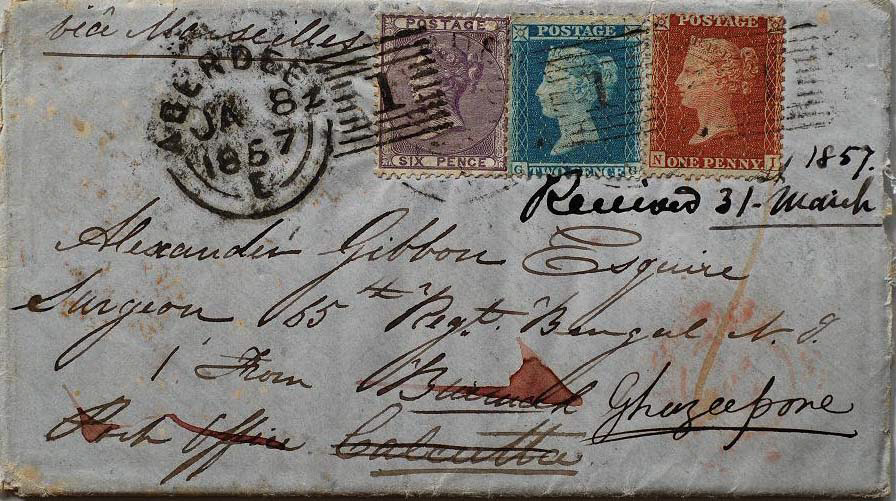 viâ Marseilles
ABERDEEN
JA 8
1857
E
1
POSTAGE
SIX PENCE
POSTAGE
G TWO PENCE G
1
POSTAGE
N ONE PENNY I
1857.
Received 31 March
Alexander Gibbon Esquire
Surgeon 65th Regt. Bengal N. I.
From
Ghazeepore
Post Office Calcutta